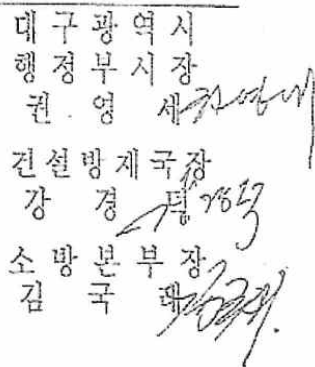 대구광역시
행정부시장
권 영 세
건설방재국장
강 경 덕
소방본부장
김 국 래